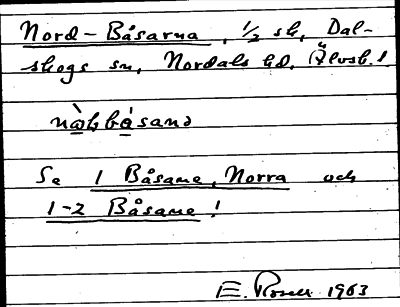 Nord-Båsarna, 1/2 sk, Dal-
skogs sn, Nordals hd, Älvsb. l
Se 1 Båsane, Norra och
1-2 Båsane!
E. Rosell 1963